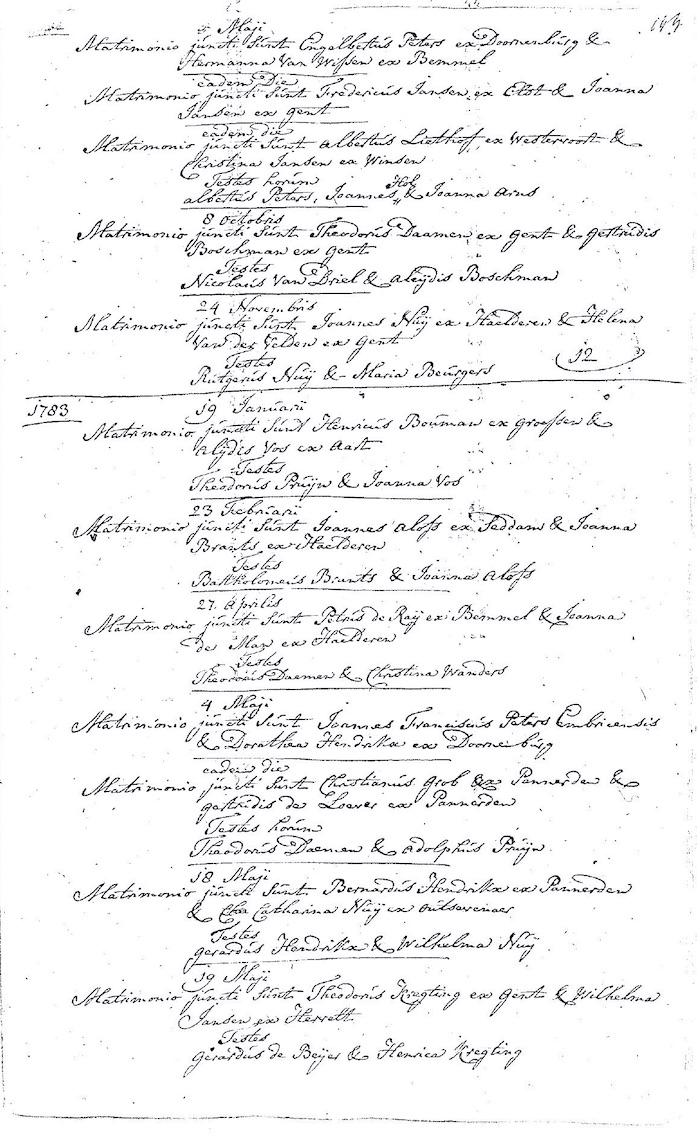 5 Maji
Matrimonio júncti súnt Engelbertús Peters ex Doornenbúrg &
Hermanna Van Wissen ex Bemmel
eadem Die
Matrimonio júncti súnt Fredericus Jansen ex Elst & Joanna
Jansen ex gent
eadem die
Matrimonio júncti súnt albertús Liethof ex Westervoort &
Christina Jansen ex Winsen
Testes horúm
albertús Peters, Joannes Hol & Joanna arns
8 octobris
Matrimonio júncti súnt Theodorús Daamen ex Gent & Gertrúdis
Boschman ex Gent
Testes
Nicolaús Van Driel & aleÿdis Boschman
24 Novembris
Matrimonio júncti súnt Joannes Núÿ ex Haelderen & Helena
Van der Velden ex Gent
Testes
Rútgerús Núÿ & Maria Beúrgers
12
1783
19 Januarii
Matrimonio júncti súnt Henricús Boúman ex groessen &
alÿdis Vos ex aart
Testes
Theodorús Prúÿn & Joanna Vos
23 Febriarii
Matrimonio júncti súnt Joannes aloss ex Seddam & Joanna
Brants ex Haelderen
Testes
Bartholomeús Brants & Joanna aloss
27 aprilis
Matrimonio júncti súnt Petrús de Raÿ ex Bemmel & Joanna
de Man ex Haelderen
Testes
Theodorús Daemen & Christina Wanders
4 Maji
Matrimonio júncti súnt Joannes Franciscús Peters Embricensis
& Dorathea Hendrikx ex Doornenbúrg
eadem die
Matrimonio júncti súnt Christianús Grob ex Pannerden &
gertrúdis de Loever ex Pannerden
Testes horúm
Theodorús Daemen & adolphús Prúÿn
18 Maji
Matrimonio júncti súnt Bernardús Hendrikx ex Pannerden
& Catharina Núÿ ex oútsevenaer
Testes
gerardús Hendrikx & Wilhelma Núÿ
19 Maji
Matrimonio júncti súnt Theodorús Kregting ex Gent & Wilhelma
Jansen ex Herveth
Testes
gerardús de Beÿer & Henrica Kregting